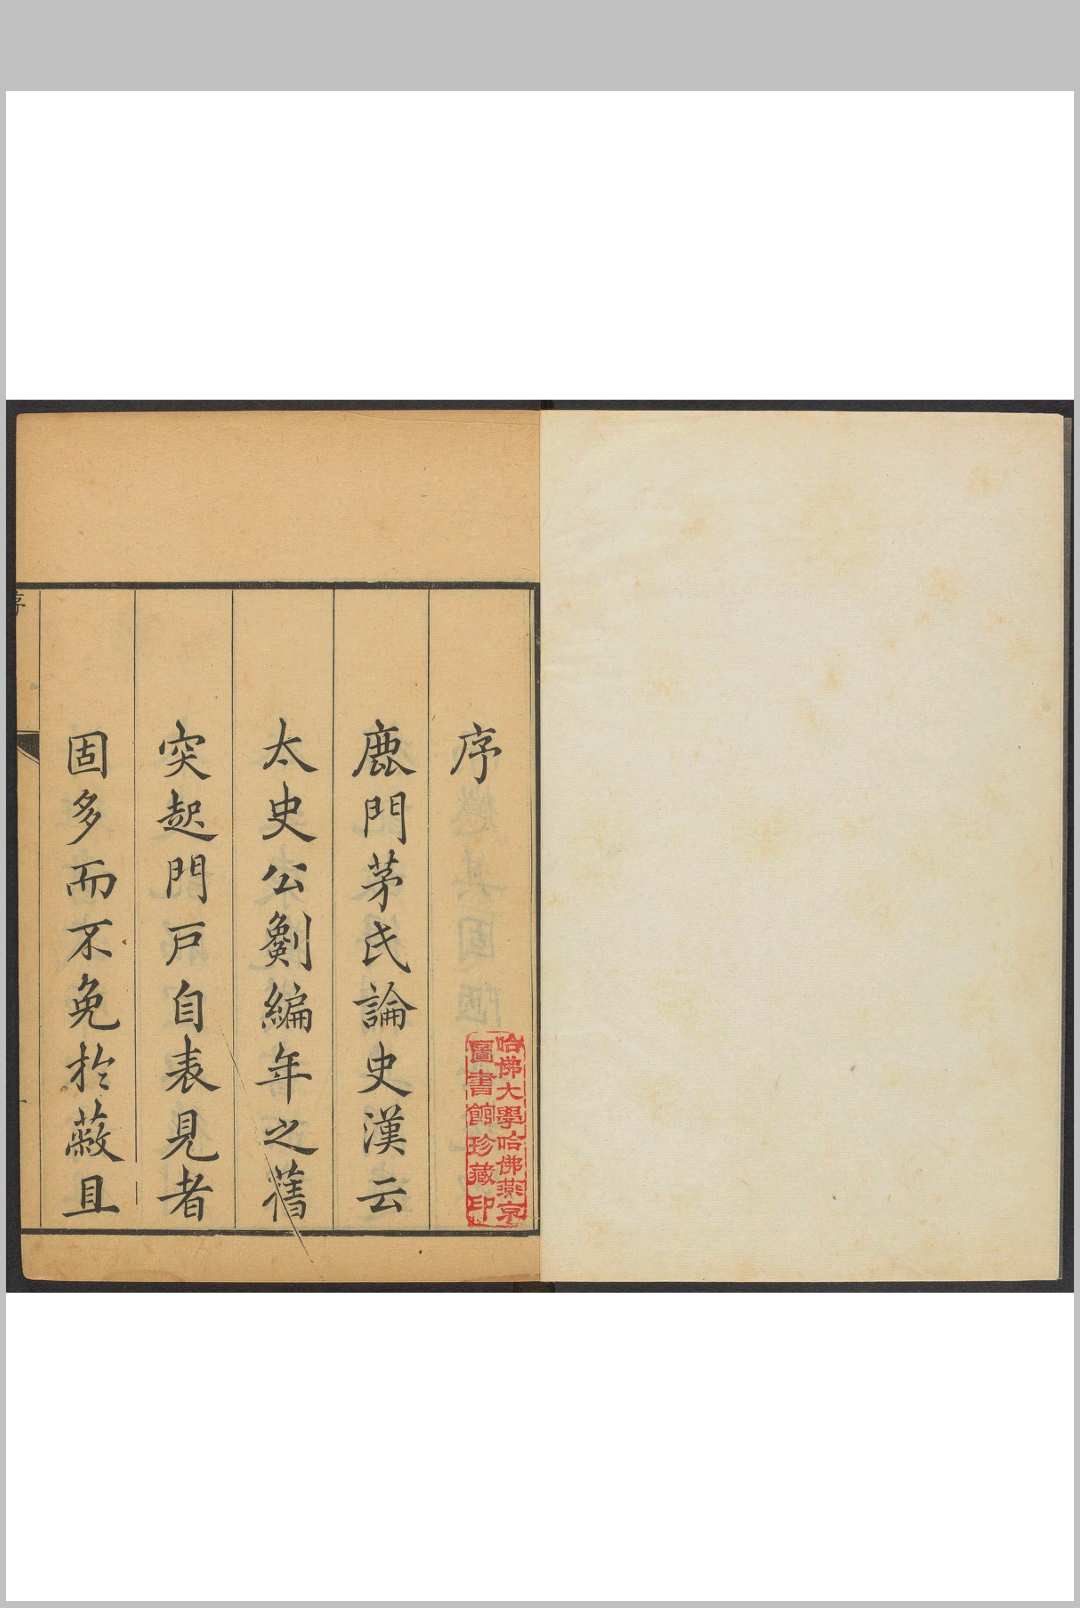 序
鹿門茅氏論史漢云
太史公劖編年之舊
突起門戸自表見者
固多而不免於蔽且
序
哈佛大學哈佛燕京
圖書館珍藏印